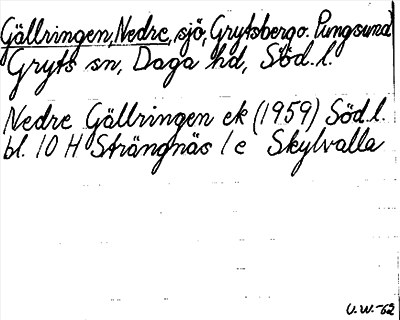 Gällringen, Nedre, sjö, Grytsbergo. Pungsund
Gryts sn, Daga hd, Söd. l.
Nedre Gällringen ek (1959) Söd. l.
bl. 10 H Strängnäs 1 e Skylvalla
U.W.-62